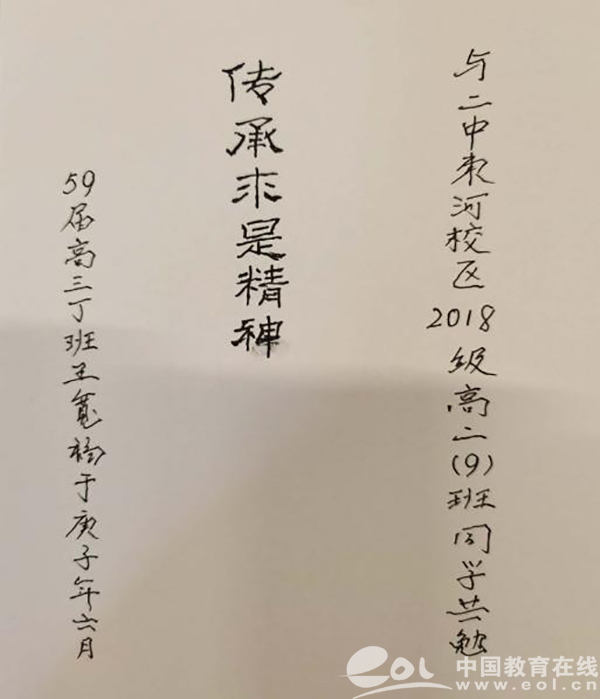 与二中东河校区2018级高二(9)班同学共勉
传承求是精神
59届高三丁班王宽福于庚子年六月
eol 中国教育在线
www.eol.cn